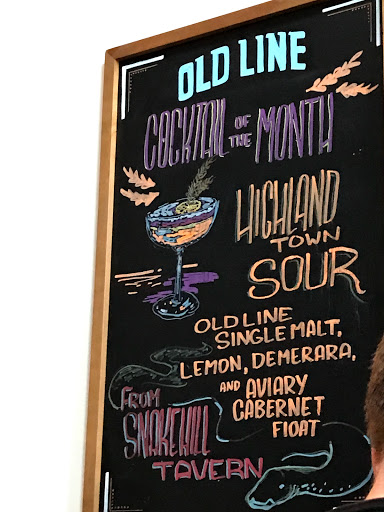 OLD LINE
COCKTAIL OF THE MONTH
HIGHLAND
TOWN
SOUR
OLD LINE
SINGLE MALT,
LEMON, DEMERARA,
AND AVIARY
CABERNET
FlOAT
FROM
SNAKEHILL
TAVERN